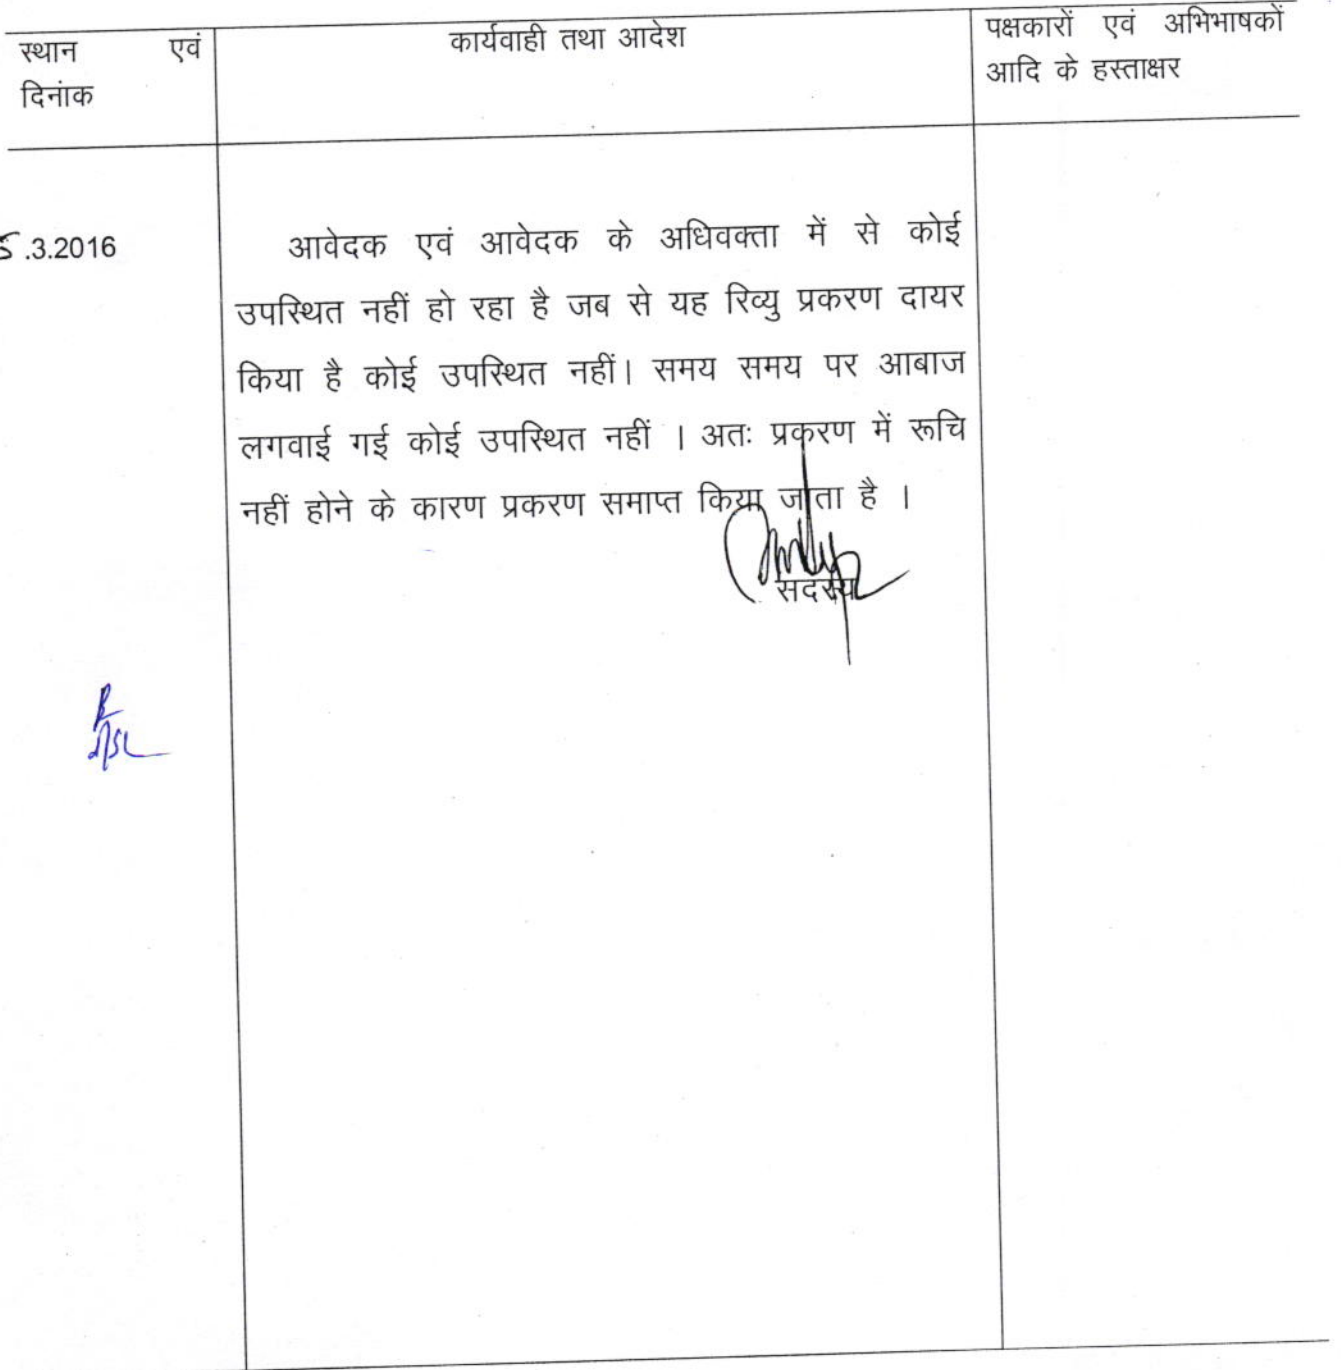 स्थान एवं
दिनांक
कार्यवाही तथा आदेश
पक्षकारों एवं अभिभाषकों
आदि के हस्ताक्षर
5.3.2016
आवेदक एवं आवेदक के अधिवक्ता में से कोई
उपस्थित नहीं हो रहा है जब से यह रिव्यु प्रकरण दायर
किया है कोई उपस्थित नहीं। समय समय पर आबाज
लगवाई गई कोई उपस्थित नहीं । अतः प्रकरण में रूचि
नहीं होने के कारण प्रकरण समाप्त किया जाता है ।
सदस्य